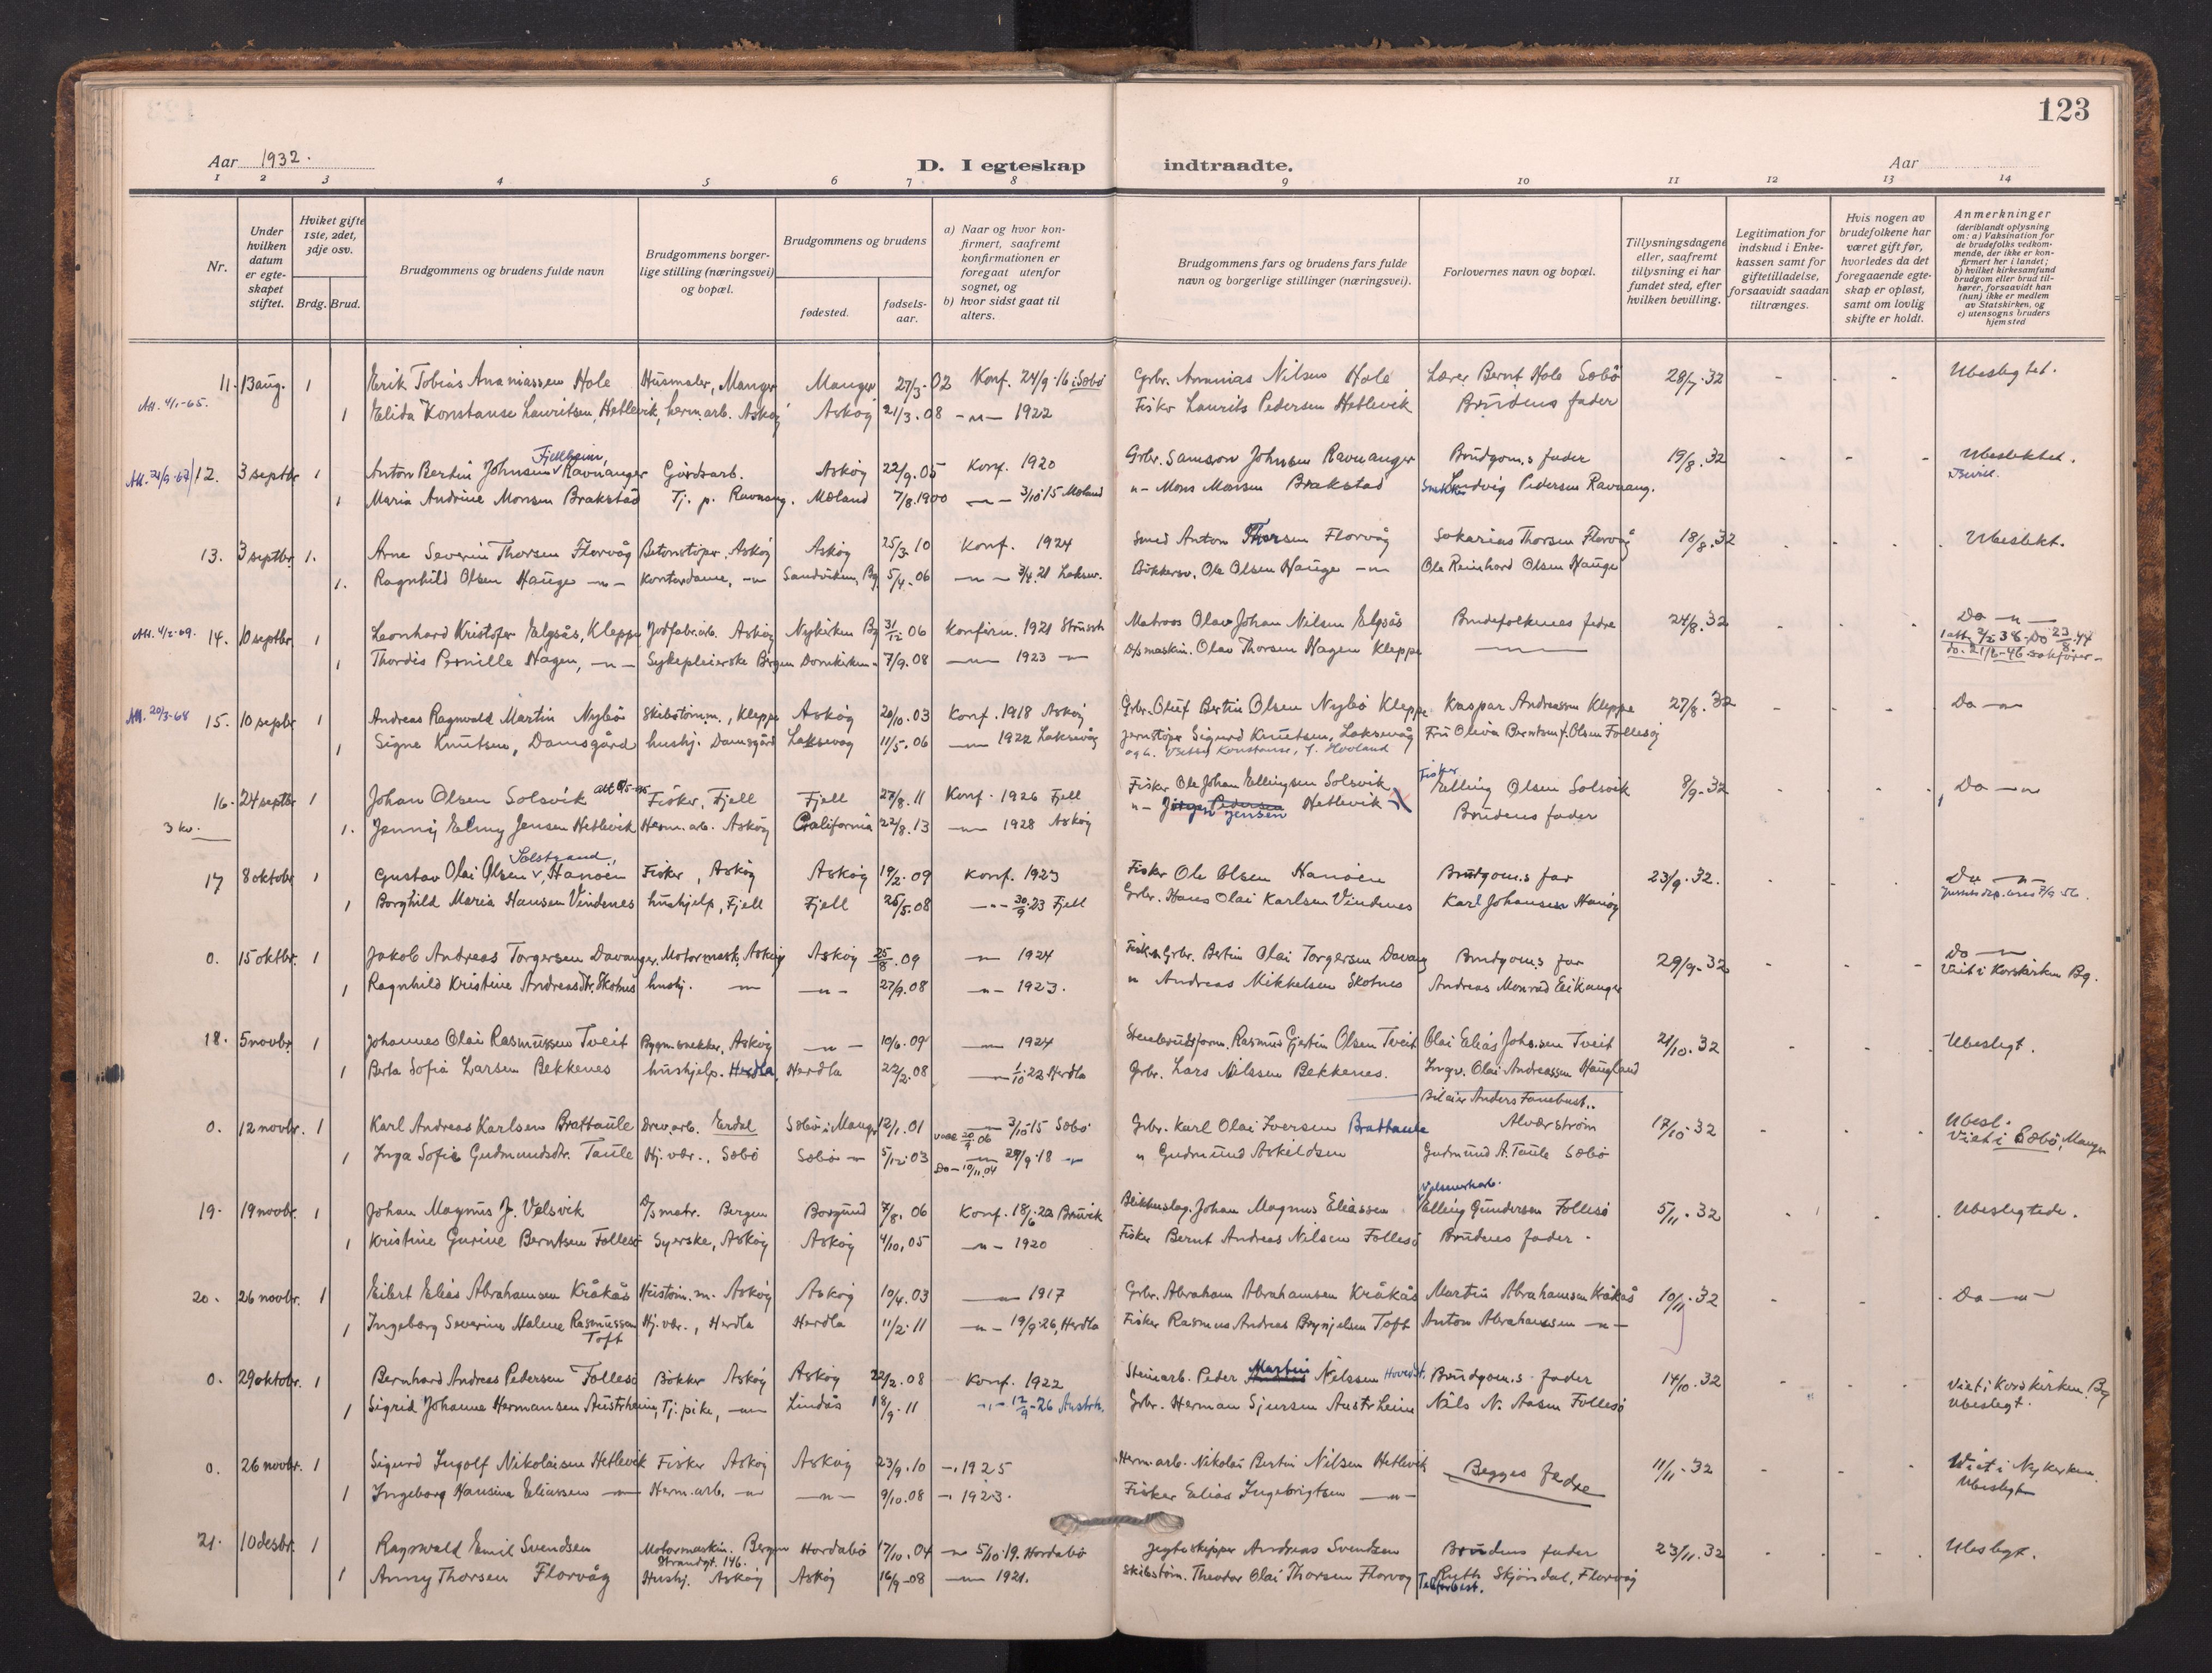 123
Aar 1932. D. I egteskap indtraadte. Aar
1 2 3 4 5 6 7 8 9 10 11 12 13 14
Nr.
Under hvilken datum er egteskapet stiftet.
Hviket gifte 1ste, 2det, 3dje osv.
Brdg. Brud.
Brudgommens og brudens fulde navn
Brudgommens borgerlige stilling (næringsvei) og bopæl.
Brudgommens og brudens
fødested.
fødselsaar.
a) Naar og hvor konfirmert, saafremt konfirmationen er foregaat utenfor sognet, og
b) hvor sidst gaat til alters.
Brudgommens fars og brudens fars fulde navn og borgerlige stillinger (næringsvei).
Forlovernes navn og bopæl.
Tillysningsdagene eller, saafremt tillysning ei har fundet sted, efter hvilken bevilling.
Legitimation for indskud i Enkekassen samt for giftetilladelse, forsaavidt saadan tiltrænges.
Hvis nogen av brudefolkene har været gift før, hvorledes da det foregaaende egteskap er opløst, samt om lovlig skifte er holdt.
Anmerkninger (deriblandt oplysning om: a) Vaksination for de brudefolks vedkommende, der ikke er konfirmert her i landet; b) hvilket kirkesamfund brudgom eller brud tilhører, forsaavidt han (hun) ikke er medlem av Statskirken, og c) utensogns bruders hjemsted
11. 13 aug. 1 Erik Tobias Ananiassen Hole Husmaler, Manger Manger 27/3. 02 Konf. 24/9-16 i Sæbø Grbr. Ananias Nilsen Hole Lærer Bernt Hole Sæbø 28/7. 32 - - - Ubeslegtet.
1 Elida Konstanse Lauritsen, Hetlevik, herm.arb. Askøy Askøy 21/3. 08 -"- 1922 Fisker Laurits Pedersen Hetlevik Brudens fader
12. 3 septbr 1 Anton Bertin Johnsen Fjellheim, Ravnanger Gårdsarb. Askøy 22/9. 05 Konf. 1920 Grbr. Samson Johnsen Ravnanger Brudgom.s fader 19/8. 32 - - - Ubeslektet.
1 Maria Andrine Monsen Brakstad Tj. p. Ravnang. Mæland 7/8. 1900 -"- 3/10.15 Mæland "- Mons Monsen Brakstad Ludvig Pedersen Ravnang.
13. 3 septbr. 1. Arne Severin Thorsen Florvåg Betonstøper, Askøy Askøy 25/3. 10 Konf. 1924 Smed Anton Thorsen Florvåg Sakarias Thorsen Florvåg 18/8. 32 - - - Ubeslekt.
1. Ragnhild Olsen Hauge -"- Kontordame, -"- Sandviken, Bg. 5/4. 06 -"- 3/4.21 Laksev. Bøkkersv. Ole Olsen Hauge -"- Ole Reinhard Olsen Hauge
14. 10 septbr. 1 Leonhard Kristofer Elgsås, Kleppe Jodfabr.arb. Askøy Nykirken Bg 31/12 06 Konfirm. 1921 Matros Olav Johan Nilsen Elgsås Brudefolkenes fedre 24/8. 32 - - - Do -"-
1 Thordis Pernille Hagen, -"- Sykepleierske Bergen Domkirken - 7/9. 08 -"- 1923 -"- D/s maskin. Olav Thorsen Hagen Kleppe -"-
15. 10 septbr 1 Andreas Ragnvald Martin Nybø Skibstømm., Kleppe Askøy 20/10. 03 Konf. 1918 Askøy Grbr. Oluf Bertin Olsen Nybø Kleppe. Kaspar Andreassen Kleppe 27/8. 32 - - - Do -"-
1 Signe Knutsen, Damsgård hushj. Damsgård Laksevåg 11/5. 06 -"- 1922 Laksevåg Jernstøper Sigurd Knutsen, Laksevåg Fru Oliva Berntsen f. Olsen Follesøy
16. 24 septbr 1 Johan Olsen Solsvik Fisker, Fjell Fjell 27/8. 11 Konf. 1926 Fjell Fisker Ole Johan Ellingsen Solsvik Fisker Elling Olsen Solsvik 8/9. 32 - - - Do -"-
1. Jenny Elmy Jensen Hetlevik Herm.arb. Askøy California 22/8. 13 -"- 1928 Askøy "- Jørgen Pedersen Jensen Hetlevik Brudens fader
17 8 oktobr 1 Gustav Olai Olsen Solstrand, Hanøen Fisker, Askøy Askøy 19/2. 09 Konf. 1923 Fisker Ole Olsen Hanøen Brudgom.s far 23/9. 32. - - - Do -"-
1 Borghild Maria Hansen Vindenes hushjelp, Fjell Fjell 26/5. 08 -"- 30/9.23 Fjell Grbr. Hans Olai Karlsen Vindenes Karl Johansen Hanøy
0. 15 oktbr. 1 Jakob Andreas Torgersen Davanger, Motormask. Askøy Askøy 25/8. 09 -"- 1924 Fisk. & Grbr. Bertin Olai Torgersen Davang Brudgom.s far 29/9. 32 - - - Do -"- Viet i Korskirken Bg.
1 Ragnhild Kristine Andreasdtr. Skotnes hushj. -"- -"- 27/9. 08 -"- 1923. " Andreas Mikkelsen Skotnes Andreas Monrad Eikanger
18. 5 novbr. 1 Johannes Olai Rasmussen Tveit Bygn.snekker, Askøy -"- 10/6. 09 -"- 1924 Stenbrudsform. Rasmus Gjertin Olsen Tveit Olai Elias Johs.sen Tveit 21/10. 32 - - - Ubeslegt.
1 Berta Sofia Larsen Bekkenes hushjelp. Herdla Herdla 22/2. 08 -"- 1/10.22 Herdla Grbr. Lars Nilssen Bekkenes. Ingv. Olai Andreassen Haugland
0. 12 novbr. 1 Karl Andreas Karlsen Brattaule Drev.arb. Erdal Sæbø i Manger 12/1. 01 -"- 3/10.15 Sæbø Grbr. Karl Olai Iversen Brattaule Bileier Anders Fanebust.. Alverstrøm 17/10. 32 - - - Ubesl. Viet i Sæbø, Manger
1 Inga Sofie Gudmundsdtr. Taule Hj. vær., Sæbø Sæbø -"- 5/12. 03 -"- 29/9.18 -"- " Gudmund Askildsen Gudmund A. Taule Sæbø
19. 19 novbr. 1 Johan Magnus J. Valsvik D/s matr. Bergen Borgund 7/8. 06 Konf. 18/6.22 Bruvik Blikkenslag. Johan Magnus Eliassen Elling Gundersen Follesø 5/11. 32 - - - Ubeslegtede.
1 Kristine Gurine Berntsen Follesø Syerske, Askøy Askøy 4/10. 05 -"- 1920 Fisker Bernt Andreas Nilsen Follesø Brudens fader.
20. 26 novbr. 1 Eilert Elias Abrahamsen Kråkås Hustøm.m. Askøy Askøy 10/4. 03 -"- 1917 Grbr. Abraham Abrahamsen Kråkås Martin Abrahamsen Kråkås 10/11. 32 - - - Do -"-
1 Ingeborg Severine Malene Rasmussen Toft Hj. vær., Herdla Herdla 11/2. 11 -"- 19/9.26, Herdla Fisker Rasmus Andreas Brynjelsen Toft Anton Abrahamsen -"-
0. 29 oktobr. 1 Bernhard Andreas Pedersen Follesø Bøkker Askøy Askøy 22/2. 08 Konf. 1922 Steinarb. Peder Martin Nilssen Brudgom.s fader 14/10. 32 - - - Viet i Korskirken Bg Ubeslegt.
1 Sigrid Johanne Hermansen Austrheim, Tj. pike, -"- Lindås 18/9. 11 -"- 12/9.26 Austrh. Grbr. Herman Sjursen Austrheim Nils N. Aasen Follesø
0. 26 novbr. 1 Sigurd Ingolf Nikolaisen Hetlevik Fisker Askøy Askøy 23/9. 10 -"- 1925 Herm.arb. Nikolai Bertin Nilsen Hetlevik Begges fedre 11/11. 32 - - - Viet i Nykirken. Ubeslegt
1 Ingeborg Hansine Eliassen -"- Herm.arb. -"- -"- 9/10. 08 -"- 1923. Fisker Elias Ingebrigtsen -"-
21. 10 desbr. 1 Ragnvald Emil Svendsen Motormaskin. Bergen Strandgt. 146. Hordabø 17/10. 04 -"- 5/10.19. Hordabø Jegteskipper Andreas Svendsen Brudens fader 23/11. 32 - - - Ubeslegt.
1 Anny Thorsen Florvåg Hushj. Askøy Askøy 16/9. 08 -"- 1921. Skibstøm. Theodor Olai Thorsen Florvåg Ruth Skjørsdal, Florvåg